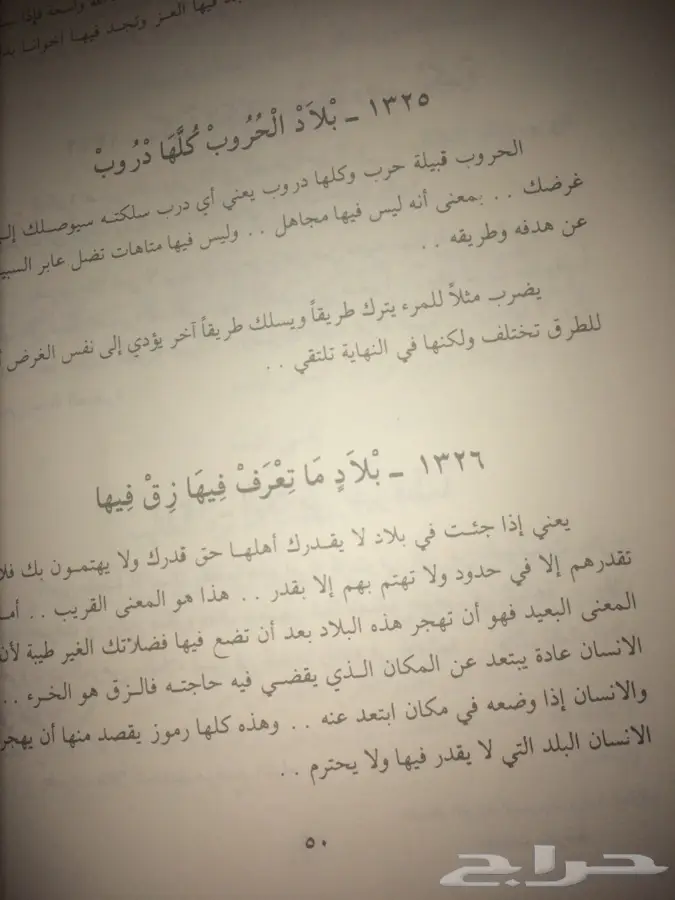 فيها العز وتجد فيها اخوانا
١٣٢٥ ـ بْلاَدْ الْحُرُوبْ كُلَّهَا دْرُوبْ
الحروب قبيلة حرب وكلها دروب يعني أي درب سلكته سيوصلك إلى
غرضك . . بمعنى أنه ليس فيها مجاهل . . وليس فيها متاهات تضل عابر
عن هدفه وطريقه . .
يضرب مثلاً للمرء يترك طريقاً ويسلك طريقاً آخر يؤدي إلى نفس الغرض
للطرق تختلف ولكنها في النهاية تلتقي . .
١٣٢٦ ـ بْلاَدٍ مَا تِعْرَفْ فِيهَا زِقْ فِيها
يعني إذا جئت في بلاد لا يقدرك أهلها حق قدرك ولا يهتمون بك فلا
تقدرهم إلا في حدود ولا تهتم بهم إلا بقدر . . هذا هو المعنى القريب . .
المعنى البعيد فهو أن تهجر هذه البلاد بعد أن تضع فيها فضلاتك الغير طيبة لأن
الانسان عادة يبتعد عن المكان الذي يقضي فيه حاجته فالزق هو الخرء . .
والانسان إذا وضعه في مكان ابتعد عنه . . وهذه كلها رموز يقصد منها أن يهجر
الانسان البلد التي لا يقدر فيها ولا يحترم . .
٥٠
حراج